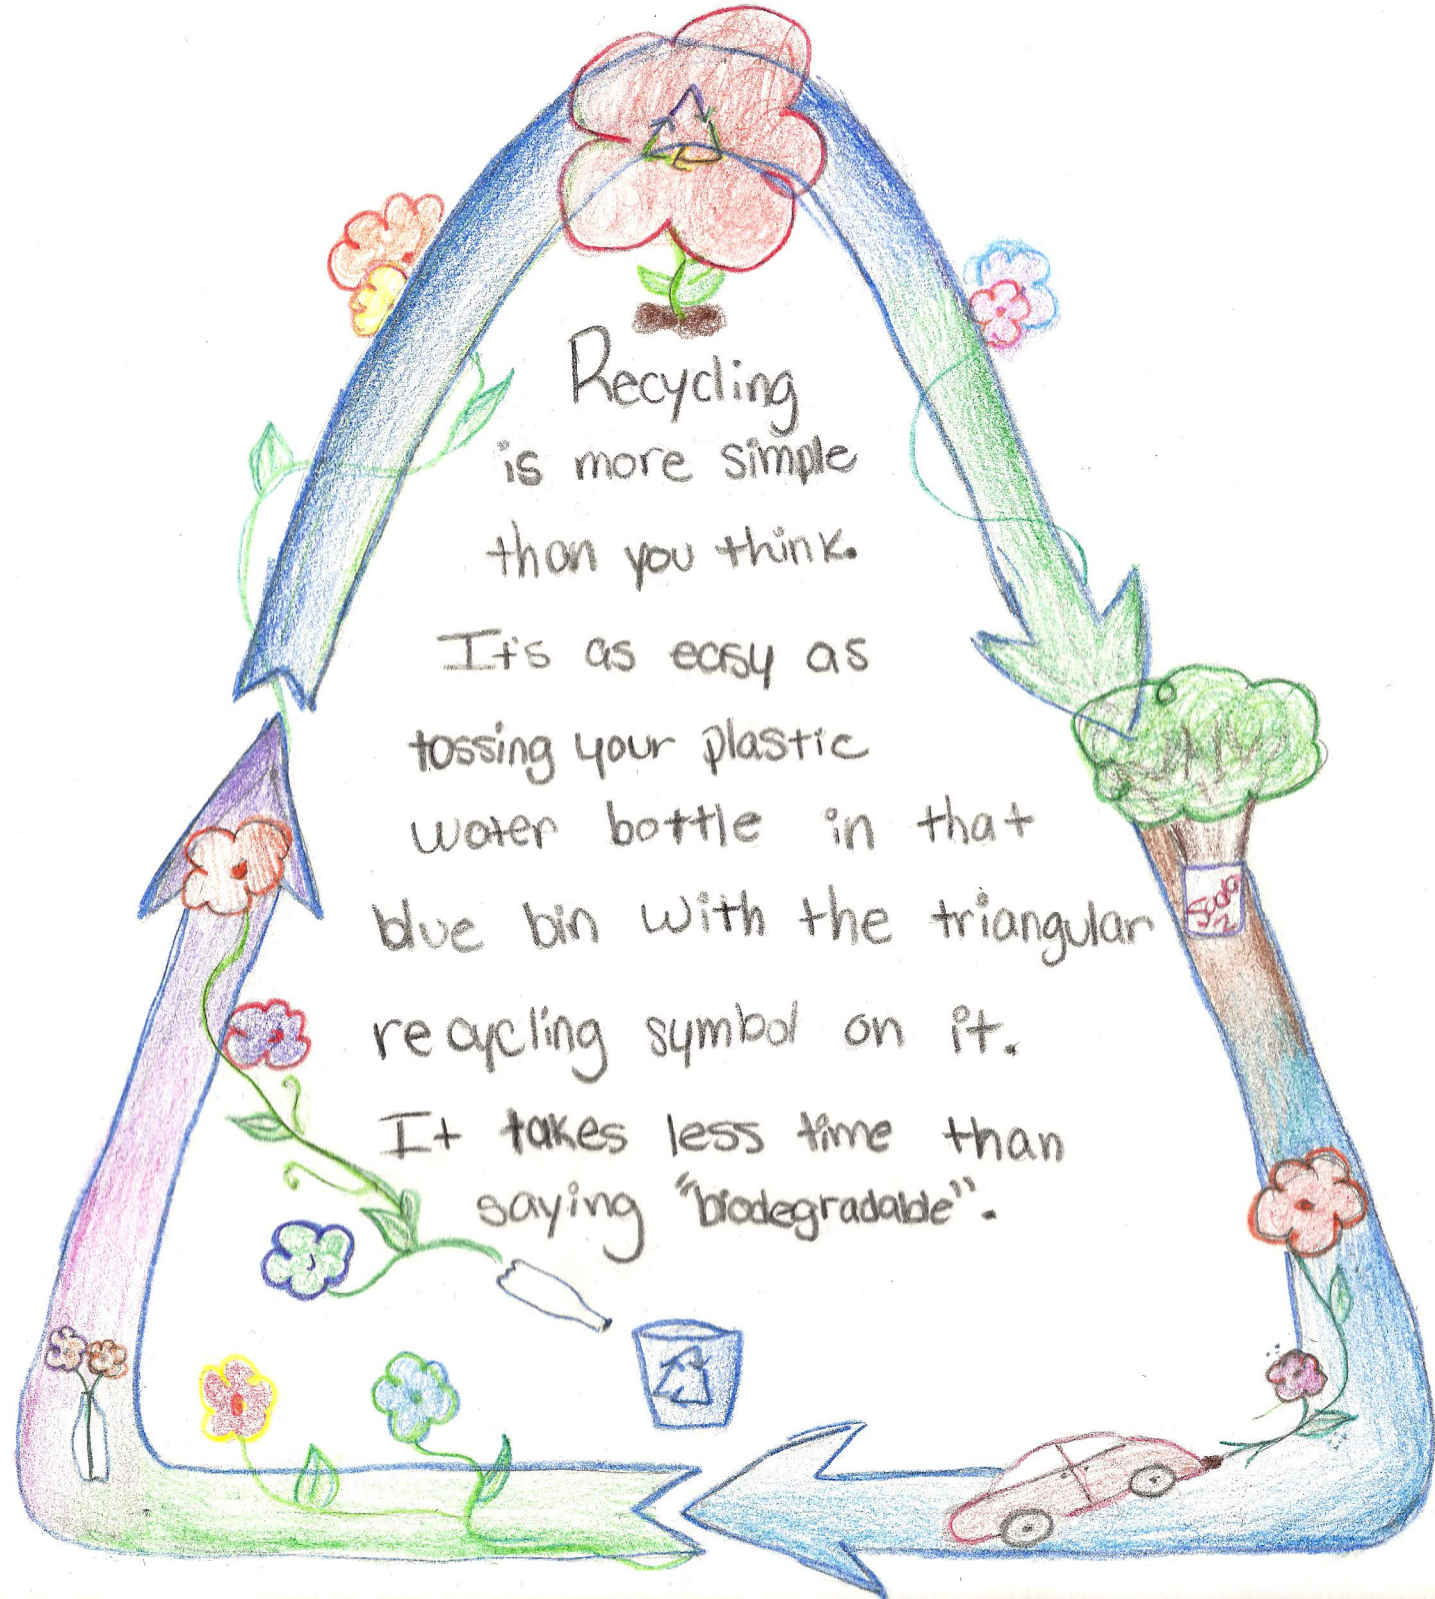 Recycling
is more simple
than you think.
It's as easy as
tossing your plastic
water bottle in that
blue bin with the triangular
recycling symbol on it.
It takes less time than
saying "biodegradable".
Soda